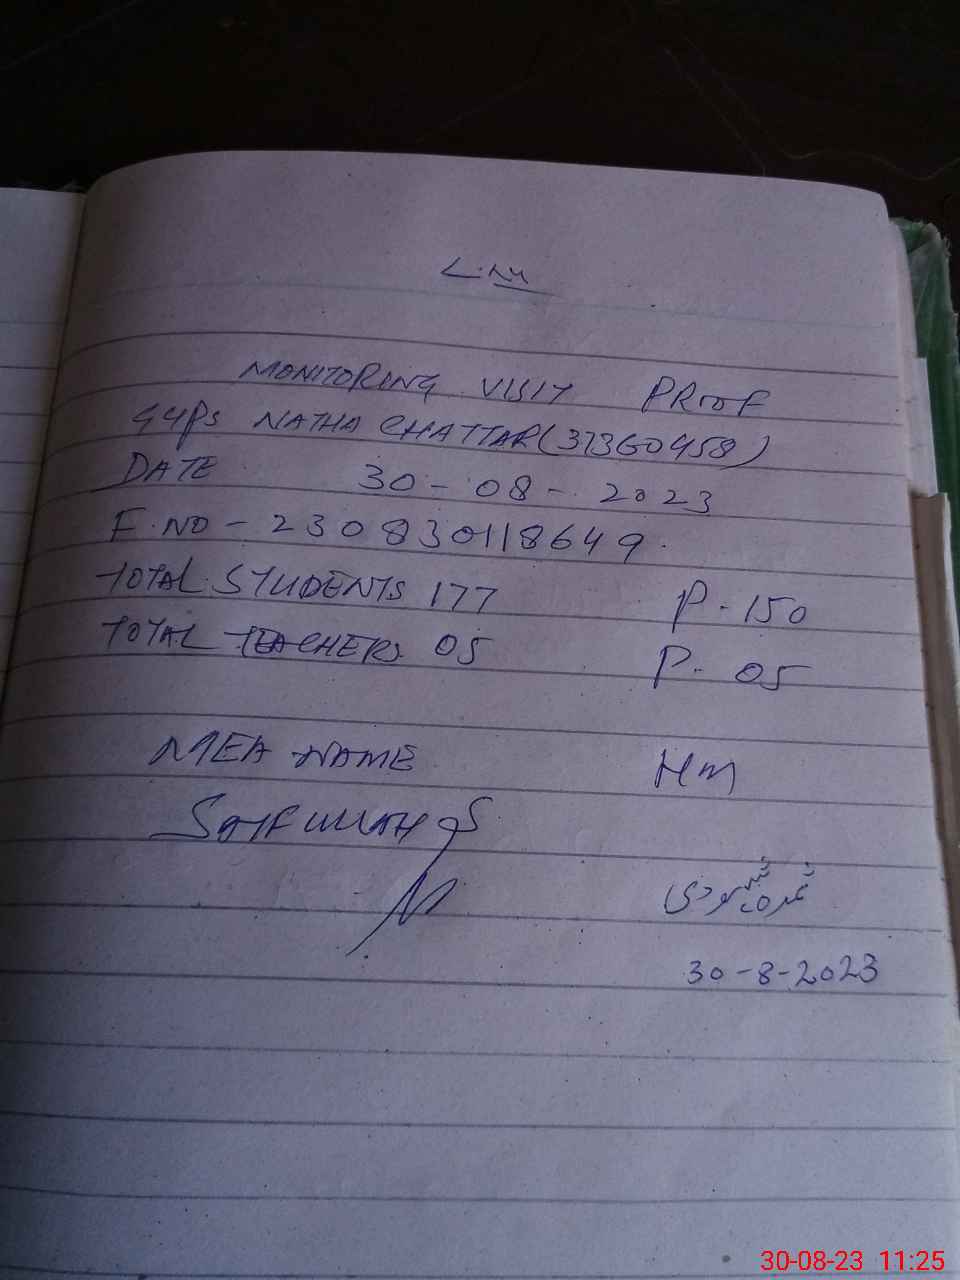 MONITORING VISIT PROOF
GGPS NATHA CHATTAR (37360458)
DATE 30-08-2023
F.NO - 230830118649.
TOTAL STUDENTS 177 P-150
TOTAL TEACHERS 05 P-05
MEA NAME HM
SAIFULLAH
30-8-2023
30-08-23 11:25